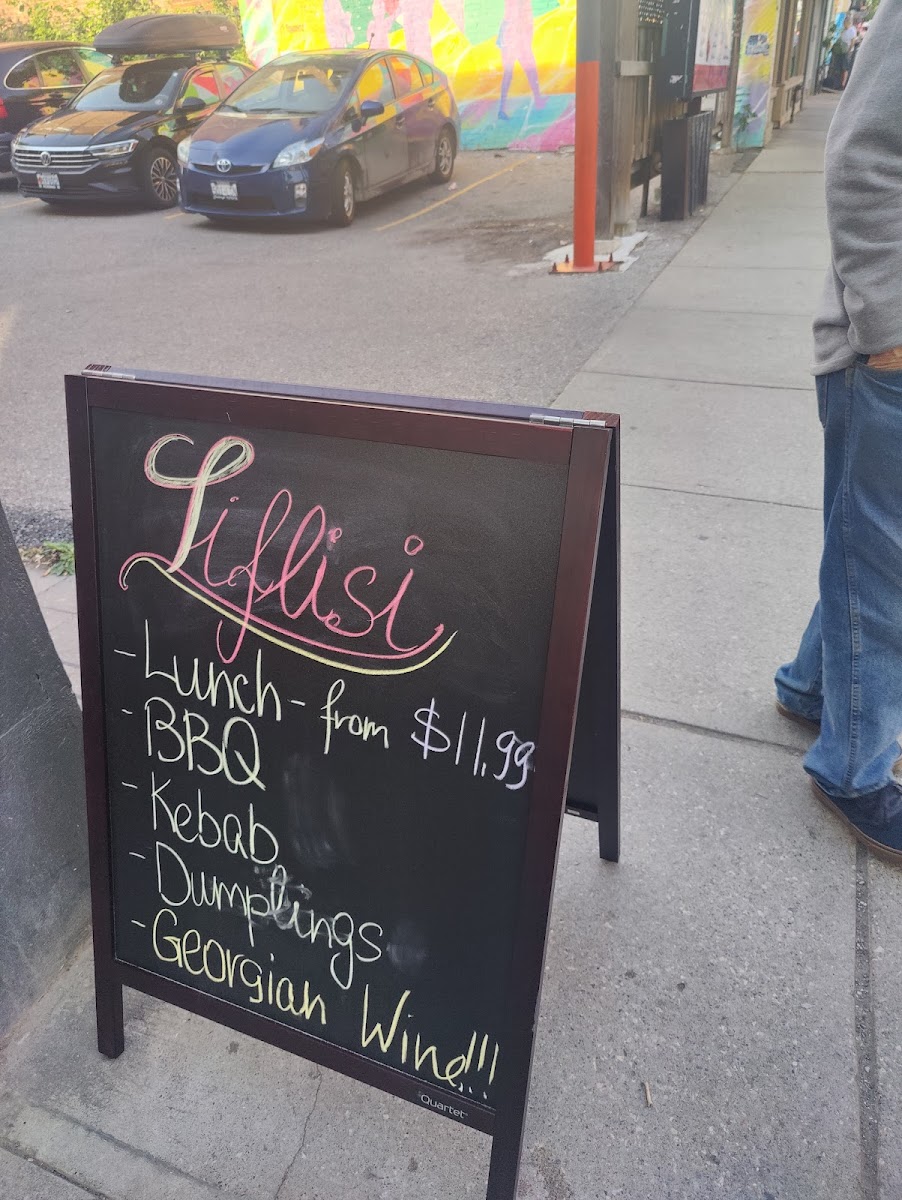 Tiflisi
- Lunch - from $11.99
- BBQ
- Kebab
- Dumplings
- Georgian Wine!!!
Quartet